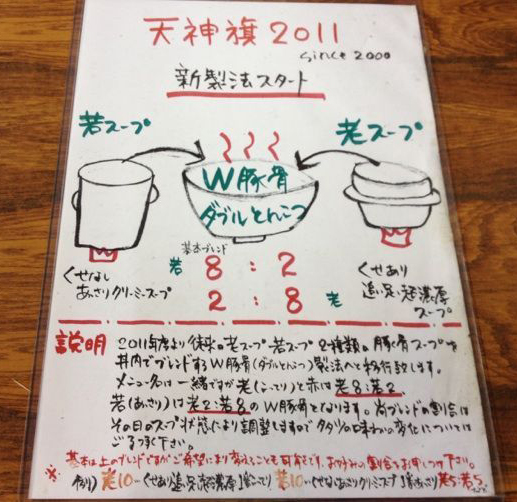 天神旗2011
since 2000
新製法スタート
若スープ
老スープ
W豚骨
ダブルとんこつ
基本ブレンド
若 8:2
2:8 老
くせなし
あっさりクリーミースープ
くせあり
追い足し超濃厚
スープ
説明 2011年度より従来の老スープ若スープ2種類の豚骨スープを
丼内でブレンドするW豚骨(ダブルとんこつ)製法へと移行致します。
メニュー名は一緒ですが老(こってり)と赤は老8:若2
若(あっさり)は老2:若8のW豚骨となります。尚ブレンドの割合は
その日のスープ状態により調整しますので多少の味わいの変化については
ご了承下さい。
※基本は上のブレンドですがご希望により変えることも可能です。お好みの割合をお申しつけ下さい。
例) 老10ー くせあり追い足し超濃厚 こってり 若10ー くせなしあっさりクリーミースープ 老5:若5